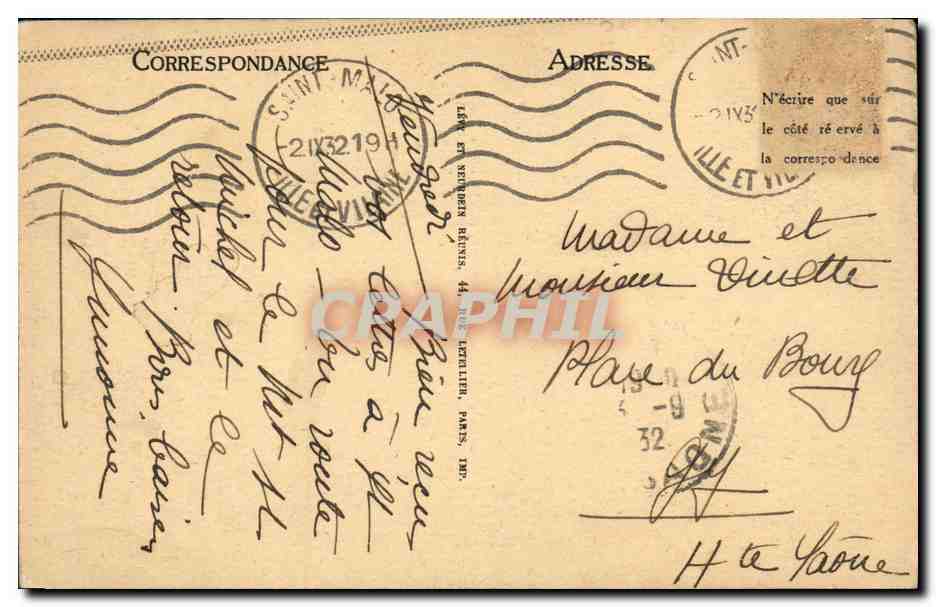 CORRESPONDANCE
ADRESSE
SAINT-MALO
-2 IX32 19H
ILLE ET VILAINE
SAINT-
-2 IX3
ILLE ET VI
N'écrire que sur
le côté ré ervé à
la correspo dance
Vendredi
Bien reçu
vos lettres à St
Malo - En route
pour le Mt St
Michel et le
retour. Bons baisers
Simonne
LÉVY ET NEURDEIN RÉUNIS, 44, RUE LETELLIER, PARIS, IMP.
Madame et
Monsieur Vinotte
Place du Bourg
Gy
Hte Saône
19
-9
32
SAONE
CRAPHIL